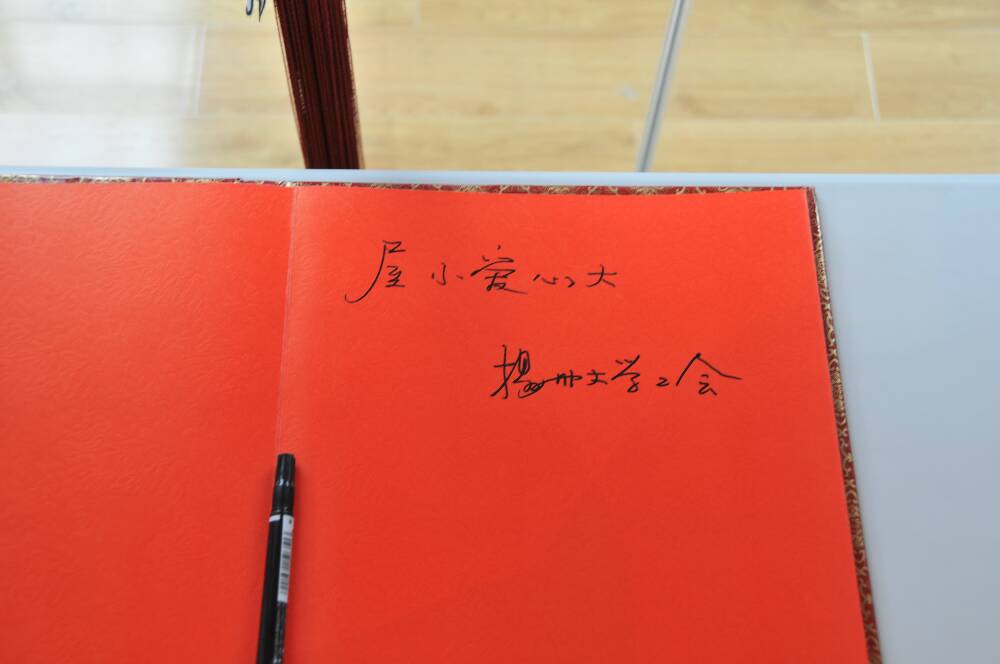 屋小爱心大
揚州大学工会